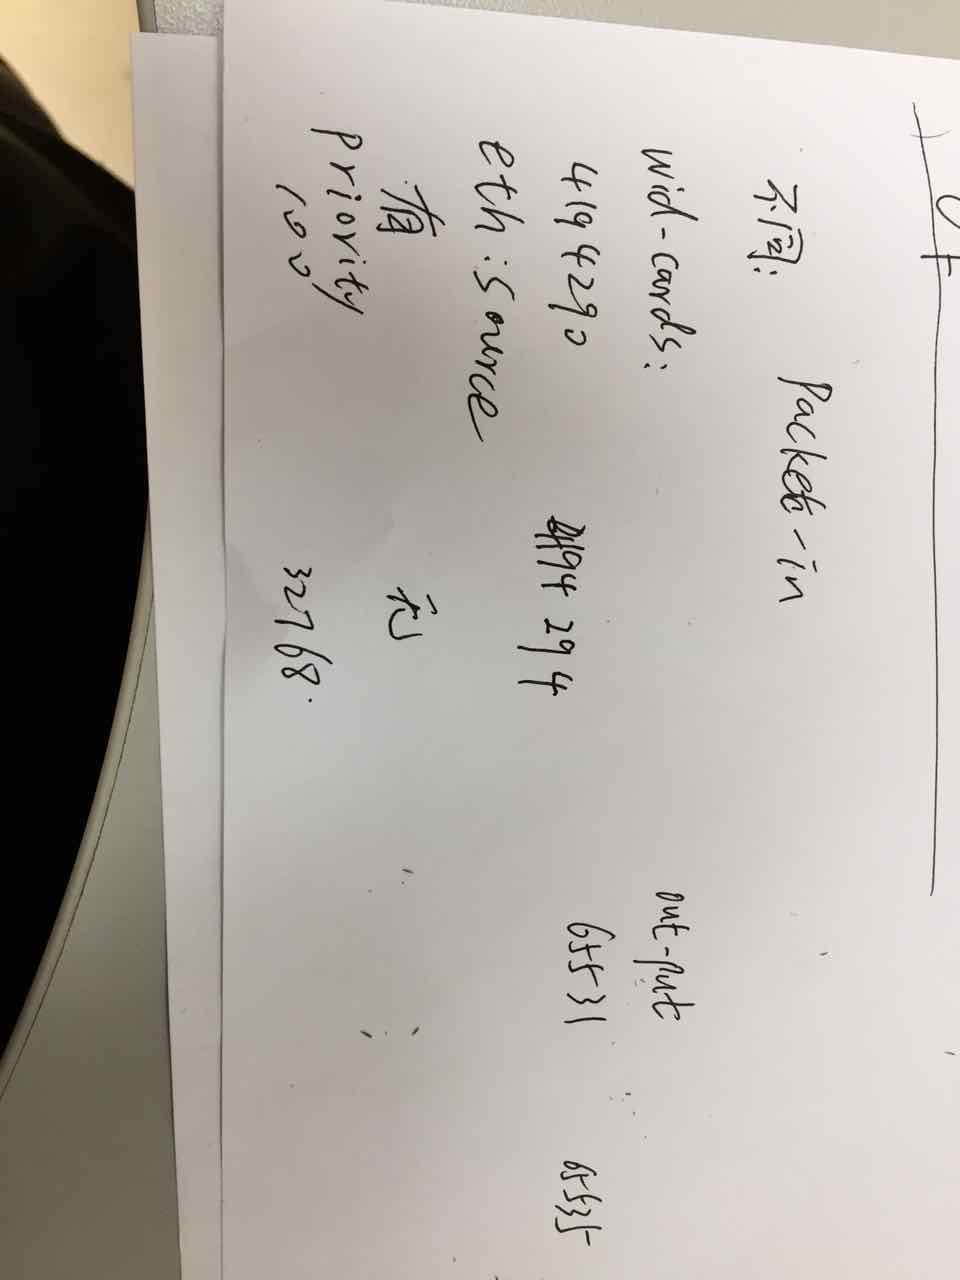 不同: Packet-in
wid-cards: out-put
4194290 4194294 65531 65535
eth:source
有 无
priority
100 32768.